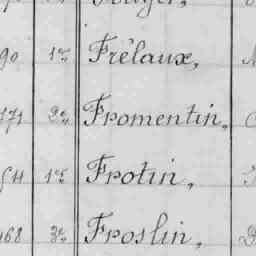 90 1re Frêlaux,
171 2e Fromentin,
54 1re Frotin,
468 3e Froslin,